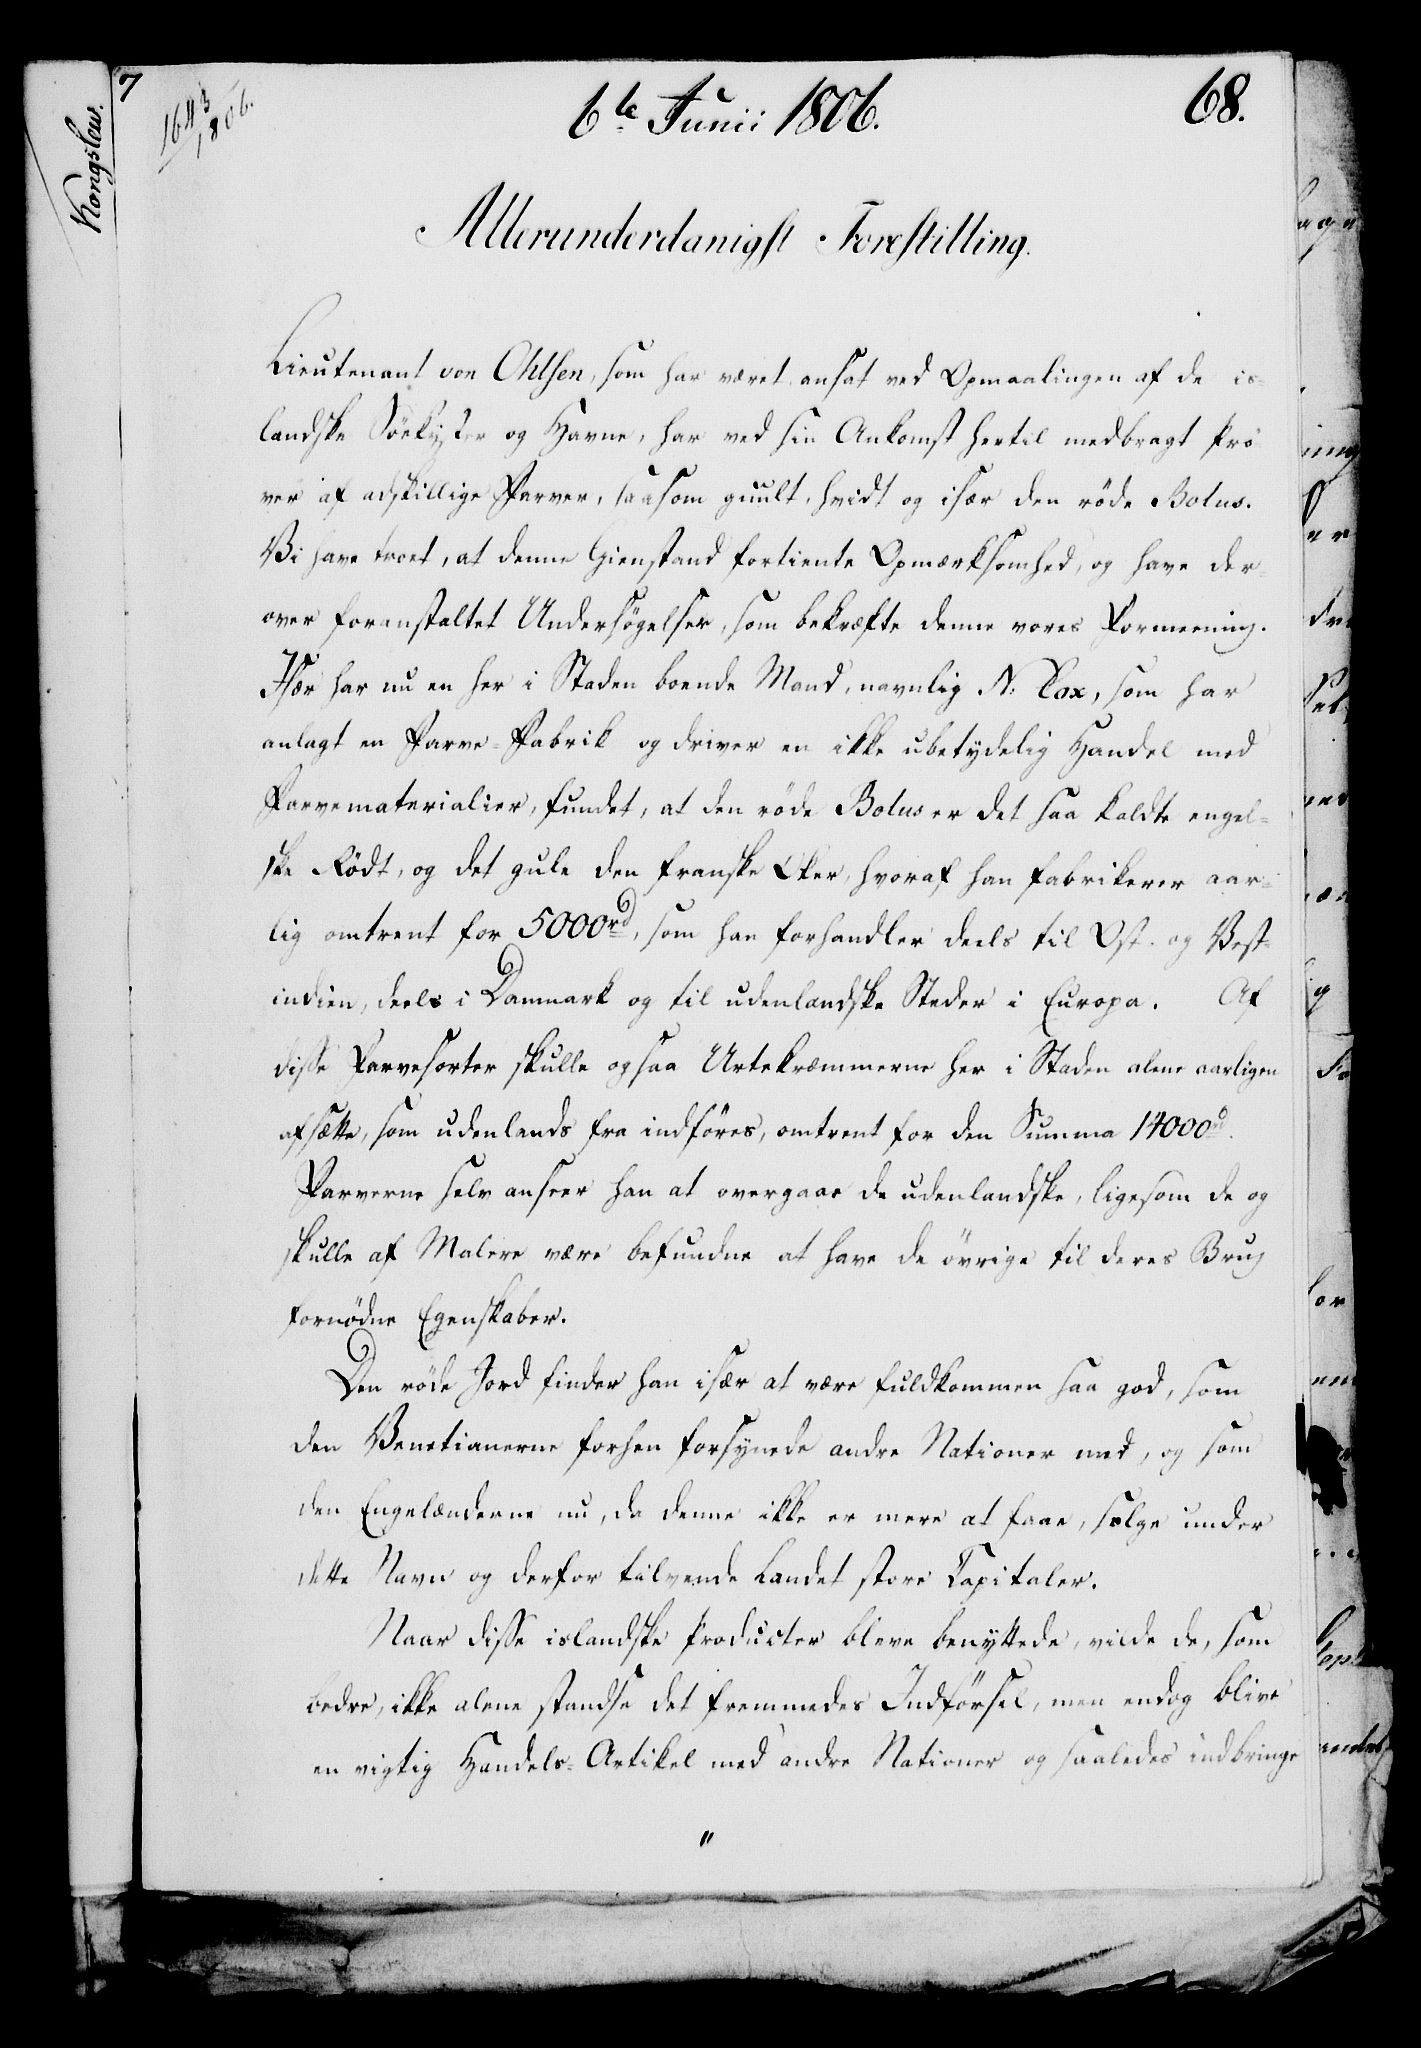 7
1643
1806.
6te Junii 1806.
68.
Kongslew.
Allerunderdanigst Forestilling.
Lieutenant von Ohlsen, som har været ansat ved Opmaalingen af de is-
landske Söekyster og Havne, har ved sin Ankomst hertil medbragt Prö
ver af adskillige Farver, saasom guult, hvidt og især den röde Bolus.
Vi have troet, at denne Gienstand fortiente Opmærksomhed, og have der-
over foranstaltet Undersögelser, som bekræfte denne vores Formeening.
Især har nu en her i Staden boende Mand, navnlig N: Cox, som har
anlagt en Farve-Fabrik og driver en ikke ubetydelig Handel med
Farvematerialier, fundet, at den röde Bolus er det saa kaldte engel-
ske Rödt, og det gule den franske Oker, hvoraf han fabrikerer aar-
lig omtrent for 5000rd, som han forhandler deels til Ost- og Vest-
indien, deels i Danmark og til udenlandske Steder i Europa. Af
disse Farvesorter skulle ogsaa Urtekræmmerne her i Staden alene aarligen
afsætte, som udenlands fra indföres, omtrent for den Summa 14000rd.
Farverne selv anseer han at overgaae de udenlandske, ligesom de og
skulle af Malere være befundne at have de övrige til deres Brug
fornödne Egenskaber.
Den röde Jord finder han især at være fuldkommen saa god, som
den Venetianerne forhen forsynede andre Nationer med, og som
den Engelænderne nu, da denne ikke er mere at faae, sælge under
dette Navn og derfor tilvende Landet store Capitaler.
Naar disse islandske Producter bleve benyttede, vilde de, som
bedre, ikke alene standse det fremmedes Indförsel, men endog blive
en vigtig Handels-Artikel med andre Nationer og saaledes indbringe
"